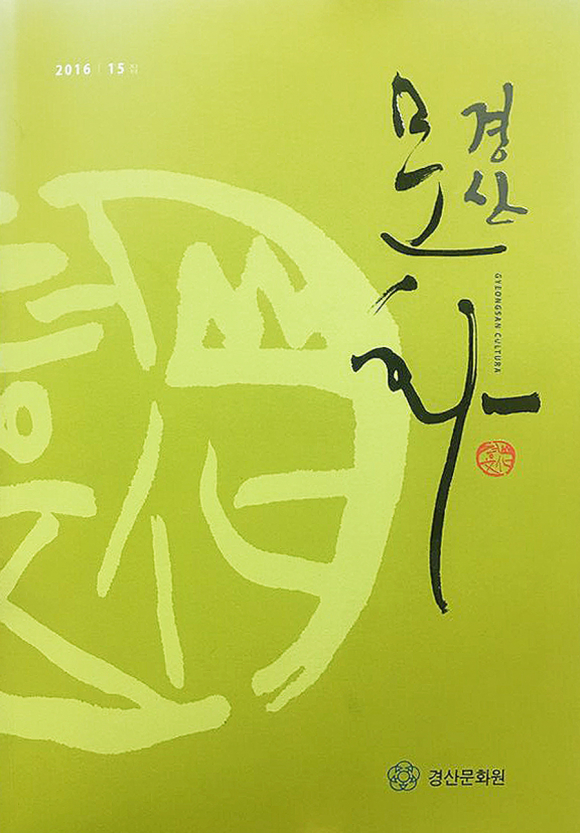 2016 | 15 집
경산
문화
GYEONGSAN CULTURA
경산문화원